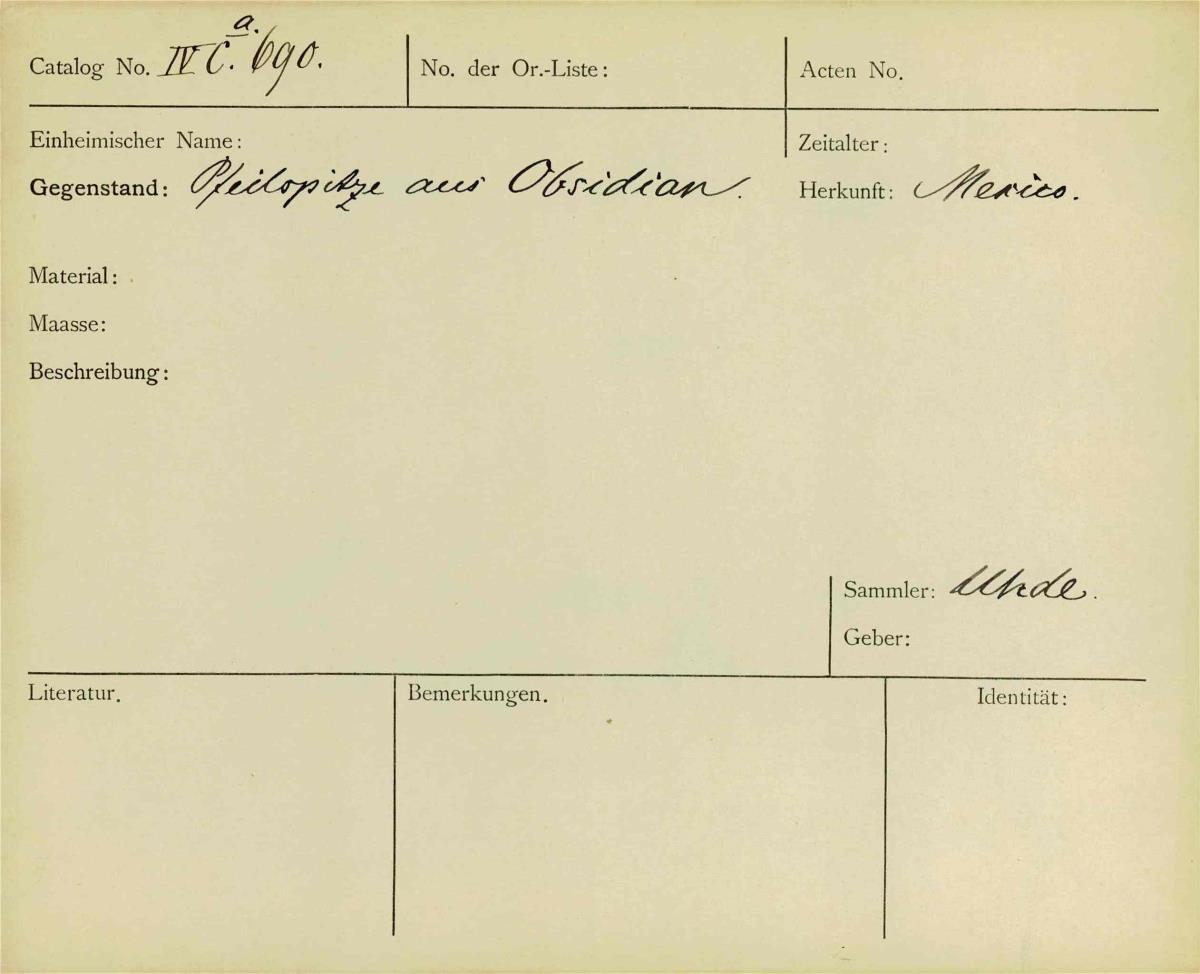 Catalog No. IV C.a. 690.
No. der Or.-Liste:
Acten No.
Einheimischer Name:
Zeitalter:
Gegenstand: Pfeilspitze aus Obsidian.
Herkunft: Mexico.
Material:
Maasse:
Beschreibung:
Sammler: Uhde.
Geber:
Literatur.
Bemerkungen.
Identität: